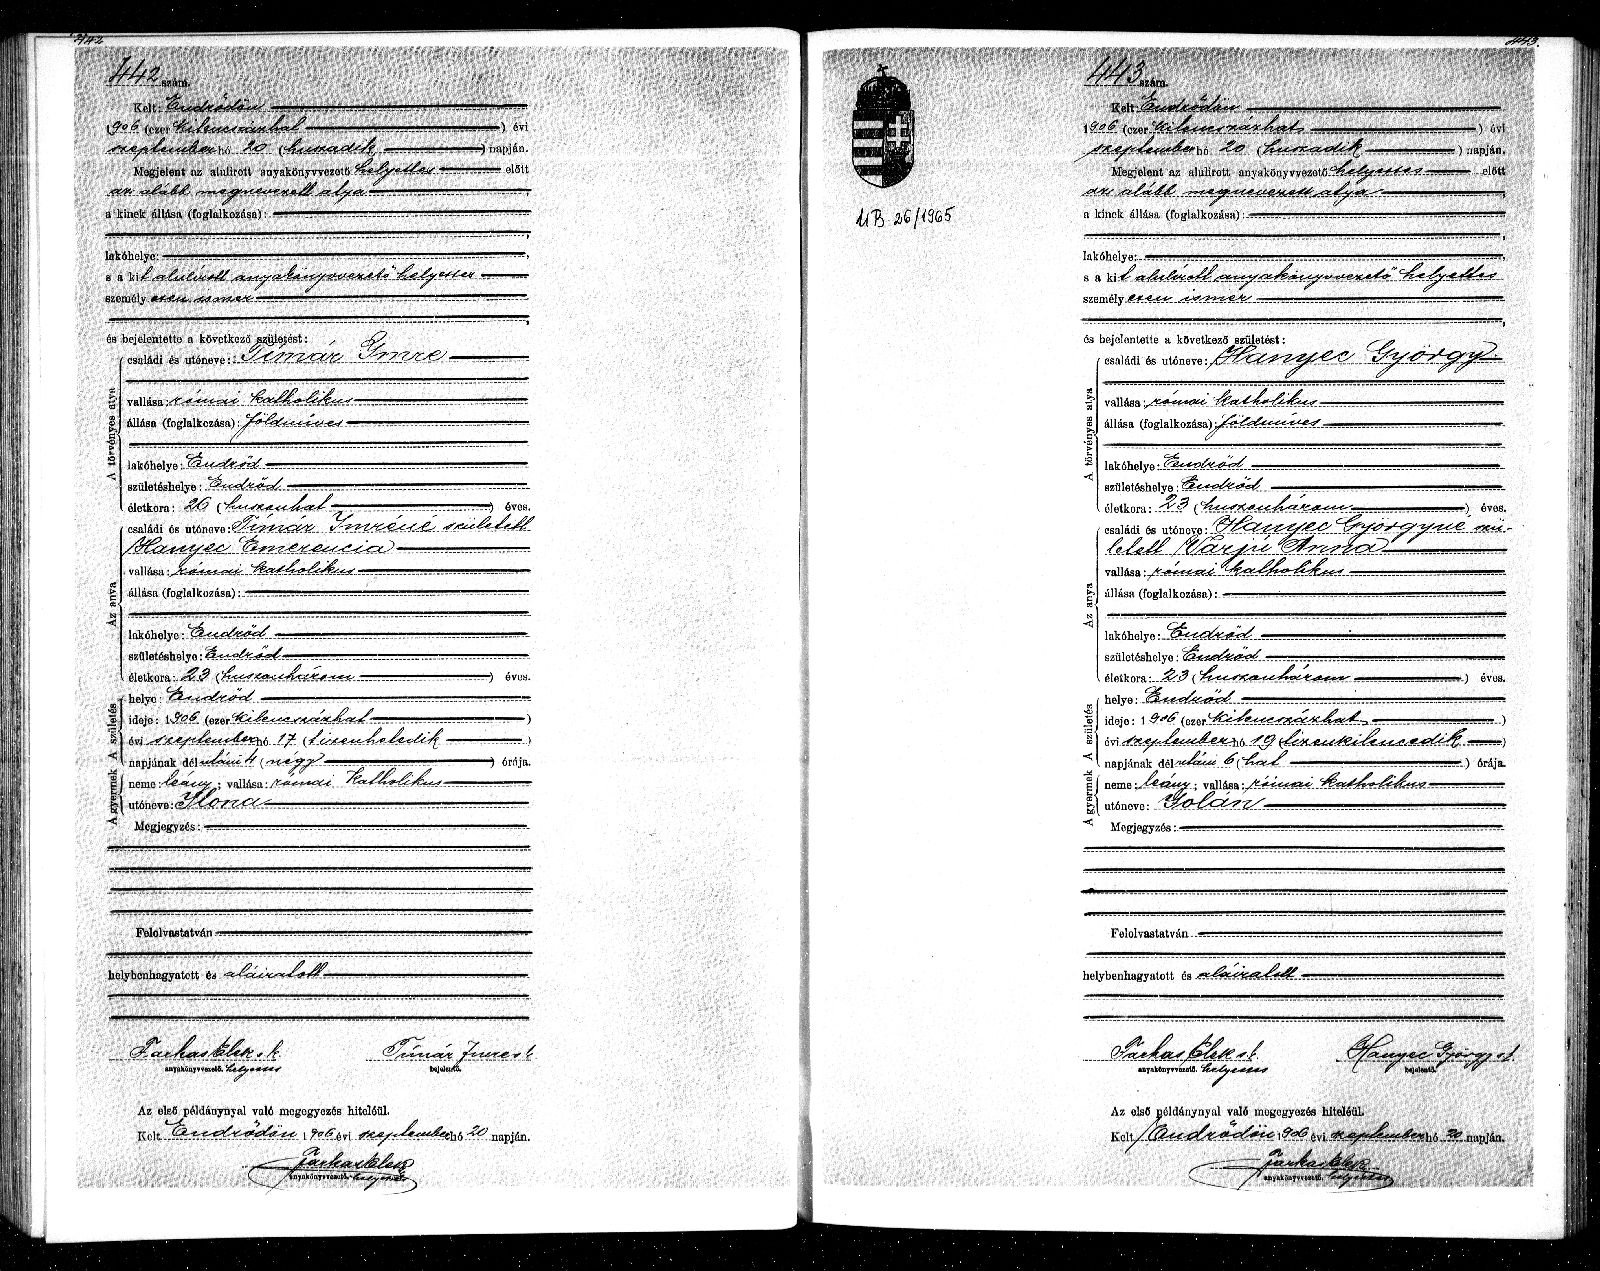 442
442 szám.
Kelt: Endrődön
1906 (ezer kilencszázhat) évi
szeptember hó 20 (huszadik) napján.
Megjelent az alulirott anyakönyvvezető helyettes előtt
az alább megnevezett atya
a kinek állása (foglalkozása):
lakóhelye:
s a kit alulirott anyakönyvvezető helyettes
személyesen ismer
és bejelentette a következő születést:
A törvényes atya
családi és utóneve: Timár Imre
vallása: római katholikus
állása (foglalkozása): földmüves
lakóhelye: Endrőd
születéshelye: Endrőd
életkora: 26 (huszonhat) éves.
Az anya
családi és utóneve: Tímár Imréné született
Hanyec Emerencia
vallása: római katholikus
állása (foglalkozása):
lakóhelye: Endrőd
születéshelye: Endrőd
életkora: 23 (huszonhárom) éves.
A születés
helye: Endrőd
ideje: 1906 (ezer kilencszázhat)
évi szeptember hó 17 (tizenhetedik)
napjának délutáni 4 (négy) órája.
A gyermek
neme: leány; vallása: római katholikus
utóneve: Ilona
Megjegyzés:
Felolvastatván
helybenhagyatott és aláiratott
Farkas Elek s.k. Tímár Imre s.k.
anyakönyvvezető. helyettes bejelentő.
Az első példánynyal való megegyezés hiteléül.
Kelt Endrődön 1906 évi szeptember hó 20 napján.
Farkas Elek
anyakönyvvezető. helyettes
443.
443 szám.
UB. 26/1965
Kelt: Endrődön
1906 (ezer kilencszázhat) évi
szeptember hó 20 (huszadik) napján.
Megjelent az alulirott anyakönyvvezető helyettes előtt
az alább megnevezett atya
a kinek állása (foglalkozása):
lakóhelye:
s a kit alulirott anyakönyvvezető helyettes
személyesen ismer
és bejelentette a következő születést:
A törvényes atya
családi és utóneve: Hanyec György
vallása: római katholikus
állása (foglalkozása): földmüves
lakóhelye: Endrőd
születéshelye: Endrőd
életkora: 23 (huszonhárom) éves.
Az anya
családi és utóneve: Hanyec Györgyné szü-
letett Varjú Anna
vallása: római katholikus
állása (foglalkozása):
lakóhelye: Endrőd
születéshelye: Endrőd
életkora: 23 (huszonhárom) éves.
A születés
helye: Endrőd
ideje: 1906 (ezer kilencszázhat)
évi szeptember hó 19 (tizenkilencedik)
napjának délutáni 6 (hat) órája.
A gyermek
neme: leány; vallása: római katholikus
utóneve: Jolán
Megjegyzés:
Felolvastatván
helybenhagyatott és aláiratott
Farkas Elek s.k. Hanyec György s.k.
anyakönyvvezető. helyettes bejelentő.
Az első példánynyal való megegyezés hiteléül.
Kelt Endrődön 1906 évi szeptember hó 20 napján.
Farkas Elek
anyakönyvvezető. helyettes